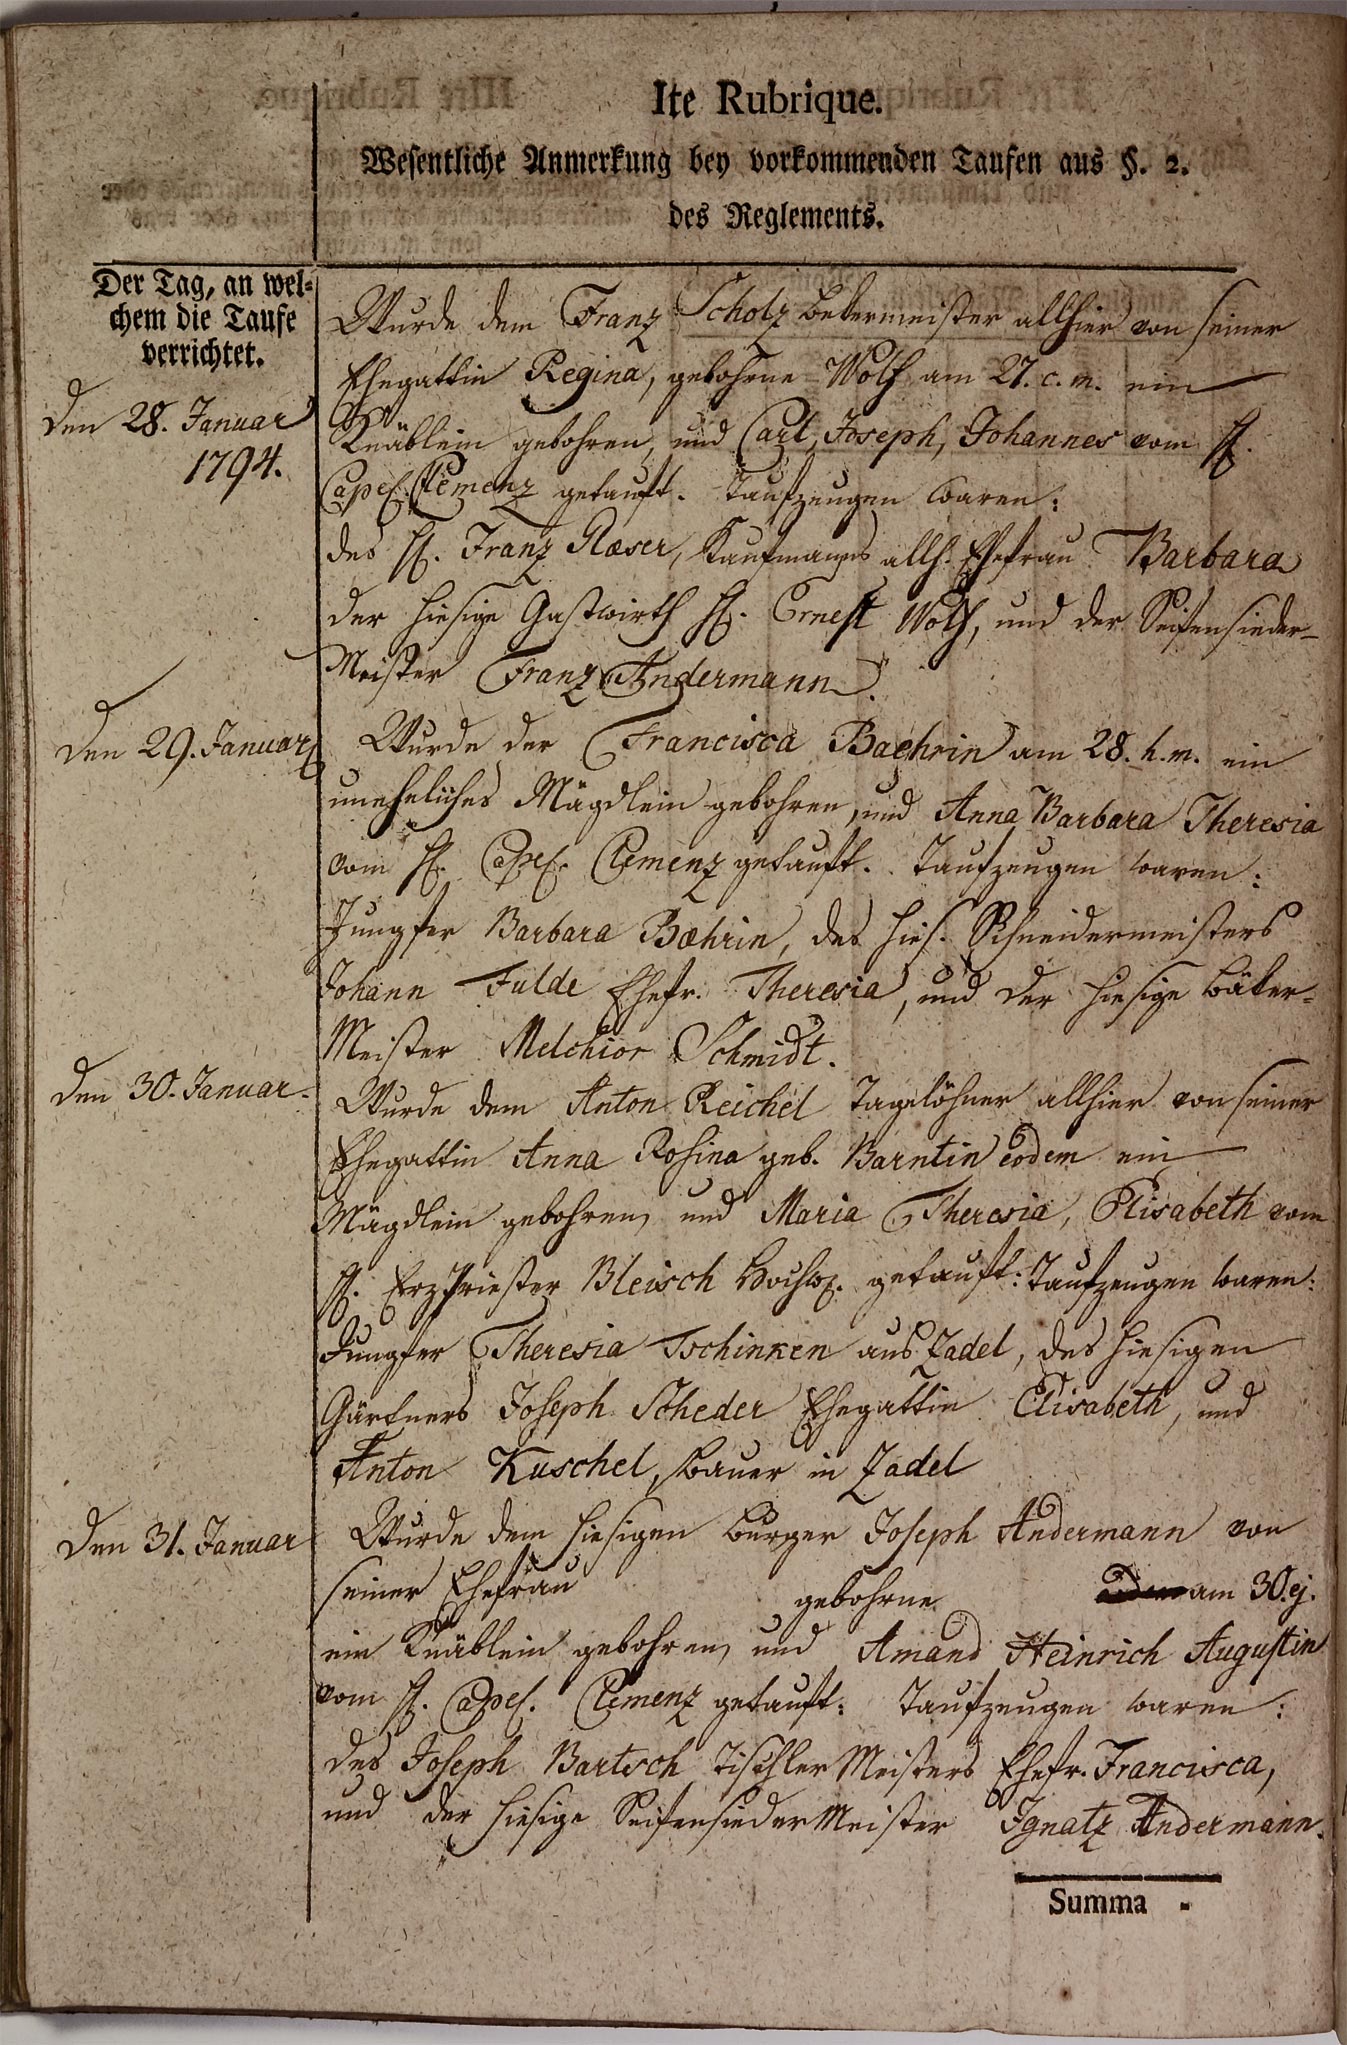 Ite Rubrique.
Wesentliche Anmerkung bey vorkommenden Taufen aus §. 2.
des Reglements.
Der Tag, an wel-
chem die Taufe
verrichtet.
Den 28. Januar
1794.
Wurde dem Franz Scholz bekermeister allhier von seiner
Ehegattin Regina, gebohrne Wolf am 27. c. m. ein
Knäblein gebohren, und Carl, Joseph, Johannes vom H.
Capel. Clemenz getauft. Taufzeugen waren:
des H. Franz Kaufmanns allh. Ehefrau Barbara
der hiesige Gastwirth H. Ernest Wolf, und der Seifensieder-
Meister Franz Andermann.
Den 29. Januar
Wurde der Francisca Baehrin am 28. h. m. ein
uneheliches Mägdlein gebohren, und Anna Barbara Theresia
vom H. Capel. Clemenz getauft. Taufzeugen waren:
Jungfer Barbara Bæhrin, des hies. Schneidermeisters
Johann Fulde Ehefr. Theresia, und der hiesige bäker-
Meister Melchior Schmidt.
Den 30. Januar.
Wurde dem Anton Reichel Tagelöhner allhier von seiner
Ehegattin Anna Rosina geb. Barntin eodem ein
Mägdlein gebohren, und Maria Theresia, Elisabeth vom
H. ErzPriester Bleisch getauft: Taufzeugen waren:
Jungfer Theresia Tschinken aus Zadel, des hiesigen
Gärtners Joseph Scheder Ehegattin Elisabeth, und
Anton Kuschel, bauer in Zadel
Den 31. Januar
Wurde dem hiesigen bürger Joseph Andermann von
seiner Ehefrau gebohrne am 30. ej.
ein Knäblein gebohren, und Amand Heinrich Augustin
vom H. Capel. Clemenz getauft: Taufzeugen waren:
des Joseph Bartsch Tischler Meisters Ehefr. Francisca,
und der hiesige Seifensieder Meister Ignatz Andermann.
Summa -